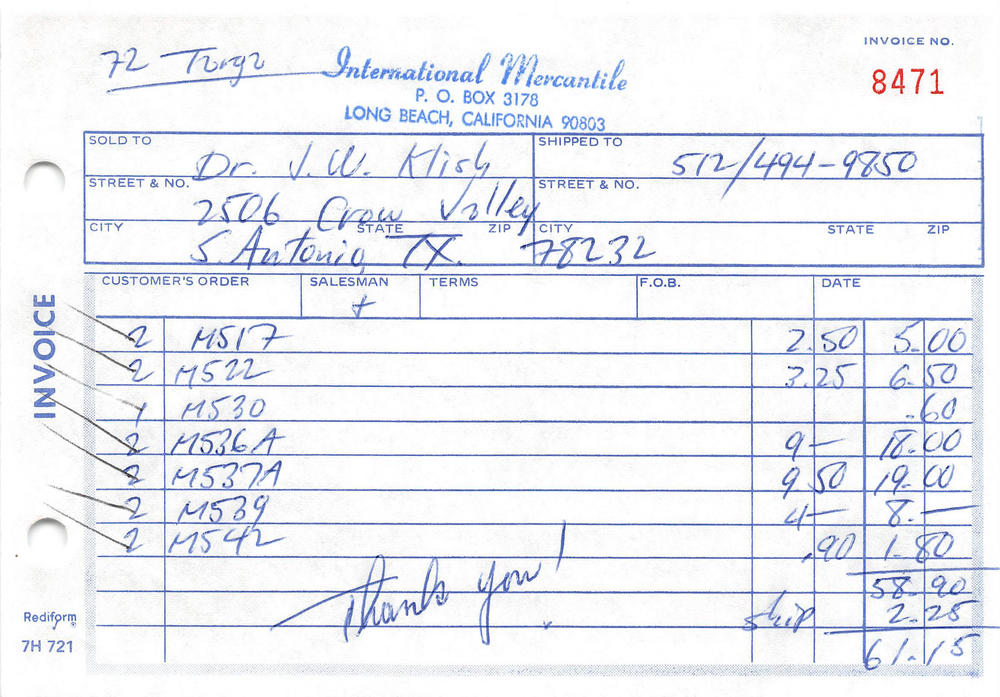 INVOICE NO.
8471
72 Targa
International Mercantile
P. O. BOX 3178
LONG BEACH, CALIFORNIA 90803
SOLD TO Dr. J. W. Klish
SHIPPED TO 512/494-9850
STREET & NO. 2506 Crow Valley
STREET & NO.
CITY S. Antonio STATE TX. ZIP 78232
CITY STATE ZIP
CUSTOMER'S ORDER SALESMAN TERMS F.O.B. DATE
INVOICE
2 M517 2.50 5.00
2 M522 3.25 6.50
1 M530 .60
2 M536A 9— 18.00
2 M537A 9 50 19.00
2 M539 4— 8.—
2 M542 .90 1.80
58.90
Thank you!
ship 2.25
61.15
Rediform
7H 721